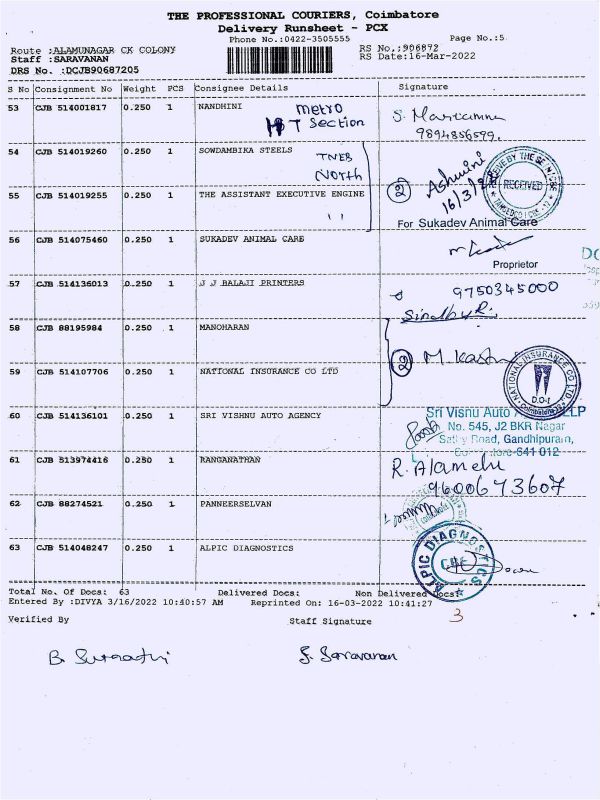 THE PROFESSIONAL COURIERS, Coimbatore
Delivery Runsheet - PCX
Phone No.:0422-3505555 Page No.:5
Route :ALAMUNAGAR CK COLONY RS No.:906872
Staff :SARAVANAN RS Date:16-Mar-2022
DRS No. :DCJB90687205
S No Consignment No Weight PCS Consignee Details Signature
53 CJB 514001817 0.250 1 NANDHINI metro
HT Section
9894856599.
54 CJB 514019260 0.250 1 SOWDAMBIKA STEELS TNEB
North
Ashwini
16/3/22
RECEIVED
55 CJB 514019255 0.250 1 THE ASSISTANT EXECUTIVE ENGINE
2
For Sukadev Animal Care
56 CJB 514075460 0.250 1 SUKADEV ANIMAL CARE
Proprietor
57 CJB 514136013 0.250 1 J J BALAJI PRINTERS
9750345000
Sindhu R.
58 CJB 88195984 0.250 1 MANOHARAN
2 M. Kash
59 CJB 514107706 0.250 1 NATIONAL INSURANCE CO LTD
NATIONAL INSURANCE CO LTD
D.O-I
Coimbatore
60 CJB 514136101 0.250 1 SRI VISHNU AUTO AGENCY
Sri Visnu Auto LLP
No. 545, J2 BKR Nagar
Sathy Road, Gandhipuram,
641 012
61 CJB 513974416 0.250 1 RANGANATHAN
R. Alamelu
9600673607
62 CJB 88274521 0.250 1 PANNEERSELVAN
63 CJB 514048247 0.250 1 ALPIC DIAGNOSTICS
ALPIC DIAGNOSTICS
CBE
Total No. Of Docs: 63 Delivered Docs: Non Delivered Docs:
Entered By :DIVYA 3/16/2022 10:40:57 AM Reprinted On: 16-03-2022 10:41:27
3
Verified By Staff Signature
S. Saravanan